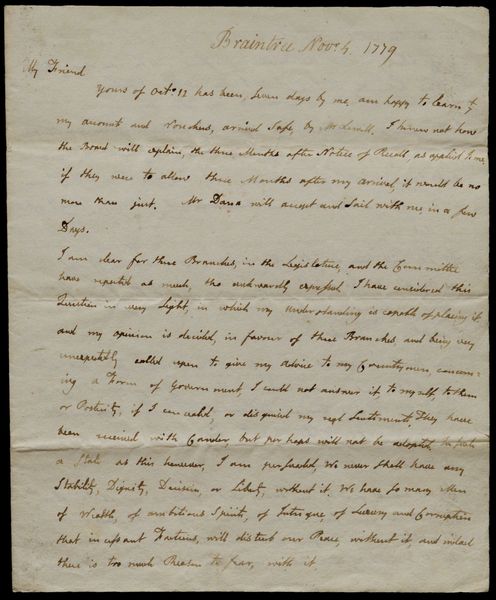 Braintree Nov. 4. 1779
My Friend
Yours of Octr. 12 has been, seven days by me, am happy to learn yt
my account and Vouchers, arrived safe, by Mr Lovell. I know not how
the Board will explain, the three Months after Notice of Recall, as applied to me,
if they were to allow three Months after my arrival, it would be no
more than just. Mr Dana will accept and Sail with me, in a few
Days.
I am clear for three Branches, in the Legislature, and the Committee
have reported as much, tho awkwardly expressed. I have considered this
Question in every Light, in which my Understanding is capable of placing it
and my opinion is decided, in favour of three Branches, and being very
unexpectedly called upon to give my Advice to my Countrymen, concern-
ing a Form of Government, I could not answer it to myself, to them
or Posterity, if I concealed or disguised my real Sentiments. They have
been received with Candor, but perhaps will not be adopted.
a State as this however, I am perswaded, We never shall have any
Stability, Dignity, Decision, or Liberty, without it. We have so many Men
of Wealth, of ambitious Spirit, of Intrigue, of Luxury and Corruption
that incessant Factions, will disturb our Peace, without it, and indeed
there is too much Reason to fear, with it.